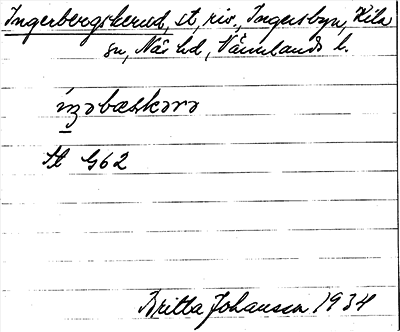 Ingerbergskerud, st, riv., Ingersbyn, Kila
sn, Näs hd, Värmlands l.
íŋəbæskərə
st G62
Britta Johansson 1934